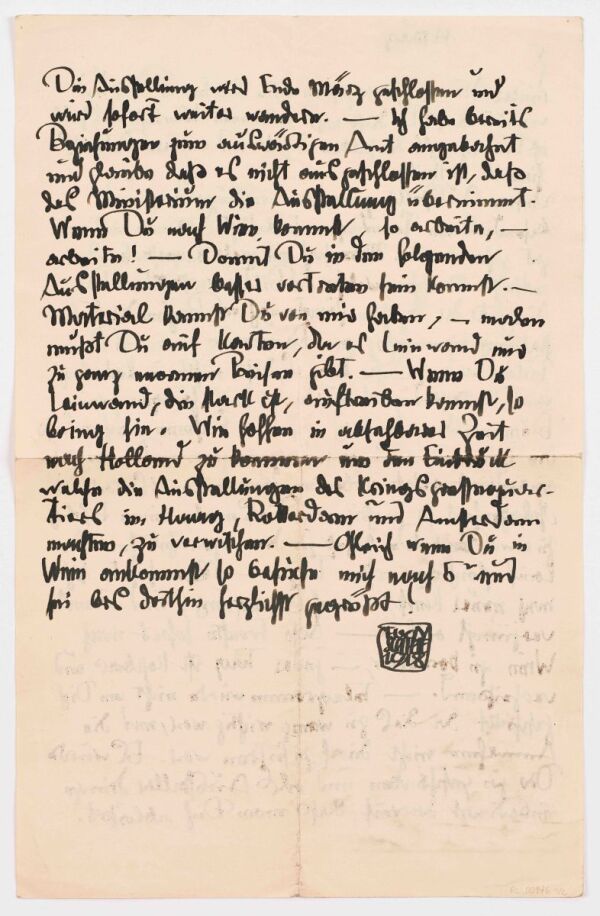 Die Ausstellung wird Ende März geschlossen und
wird sofort weiter wandern. — Ich habe bereits
Beziehungen zum auswärtigen Amt angebahnt
und glaube daß es nicht ausgeschlossen ist, daß
das Ministerium die Ausstellung übernimmt.
Wenn Du nach Wien kommst, so arbeite, —
arbeite! — Damit Du in den folgenden
Ausstellungen besser vertreten sein kannst. —
Material kannst Du von mir haben, — malen
mußt Du auf Karton, da es Leinwand nur
zu ganz enormen Preisen gibt. — Wenn Du
Leinwand, die stark ist, auftreiben kannst, so
bring sie. Wir hoffen in absehbarer Zeit
nach Holland zu kommen um den Eindruck
welche die Ausstellungen des Kriegspressequar-
tiers in Haag, Rotterdam und Amsterdam
machten, zu verwischen. — Gleich wenn Du in
Wien ankommst so besuche mich nach 6h und
sei bis dorthin herzlichst gegrüßt!
EGON
SCHIELE
1918